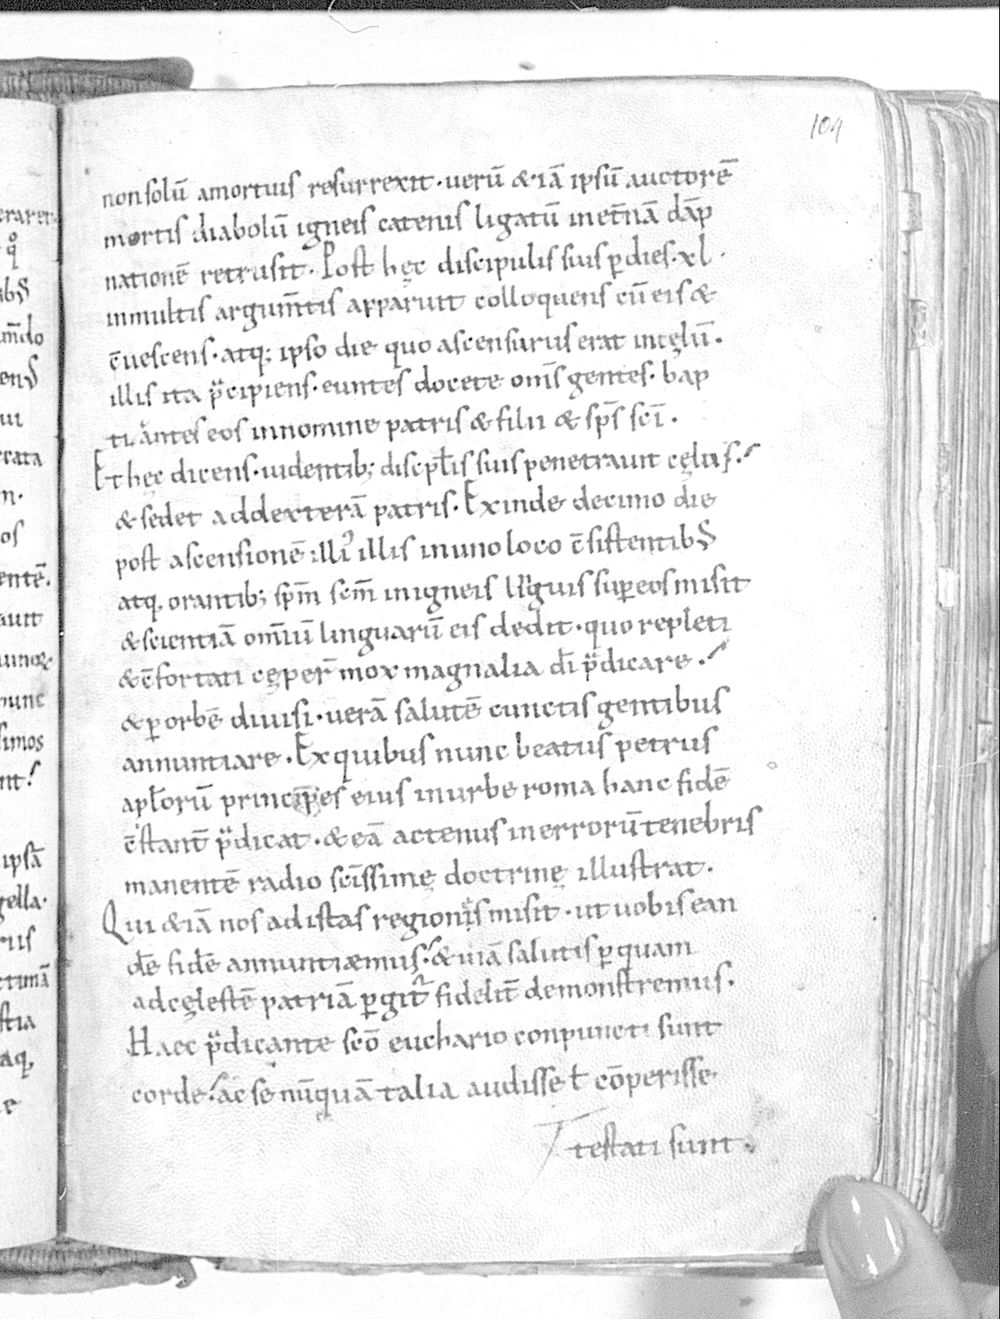 104
non solū amortuis resurrexit · uerū & iā ipsū auctorē
mortis diabolū igneis catenis ligatū inet̄nā dāp
nationē retrusit. Post hęc discipulis suis ꝑdies · xl ·
inmultis argum̄tis apparuit colloquens cū eis &
c̄uescens · atq; ipso die quo ascensurus erat incęlū .
illis ita p̈cipiens · euntes docete om̄s gentes · bap
tizantes eos innomine patris & filii & sp̄s sc̄i .
Et hęc dicens · uidentib; discipł̄is suis penetrauit cęlus .
& sedet addexterā patris . Exinde decimo die
post ascensionē illi᾽ illis inuno loco c̄sistentibꝰ
atq, orantib; sp̄m sc̄m inigneis linguis suꝑeos misit
& scientiā om̄iū linguarū eis dedit · quo repleti
& c̄fortati cęper̄ mox magnalia dī p̈dicare .
& ꝑ orbē diuisi · uerā salutē cunctis gentibus
annuntiare . Ex quibus nunc beatus petrus
apłorū princeps eius inurbe roma hanc fidē
c̄stant̄ p̈dicat . & eā actenus inerrorū tenebris
manentē radio sc̄issimę doctrinę illustrat .
Qui & iā nos adistas regiones misit · ut uobis ean
dē fidē annuntiæmus . & uiā salutis ꝑquam
adcęlestē patriā ꝑgit̄ fidelit̄ demonstremus .
Haec p̈dicante sc̄o euchario conpuncti sunt
corde . ac se nūquā talia audisse ł cōperisse
testati sunt .